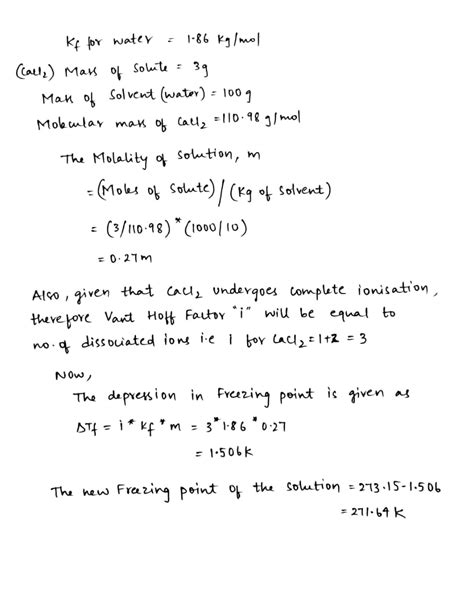 Kf for water = 1.86 kg/mol
(CaCl2) Mass of Solute = 3g
Mass of Solvent (water) = 100 g
Molecular mass of CaCl2 = 110.98 g/mol
The Molality of solution, m
= (Moles of Solute) / (kg of Solvent)
= (3/110.98) * (1000/10)
= 0.27m
Also, given that CaCl2 undergoes complete ionisation,
therefore Vant Hoff Factor "i" will be equal to
no. of dissociated ions i.e i for CaCl2 = 1+2 = 3
Now,
The depression in Freezing point is given as
ΔTf = i * Kf * m = 3 * 1.86 * 0.27
= 1.506K
The new Freezing point of the solution = 273.15-1.506
= 271.64 K